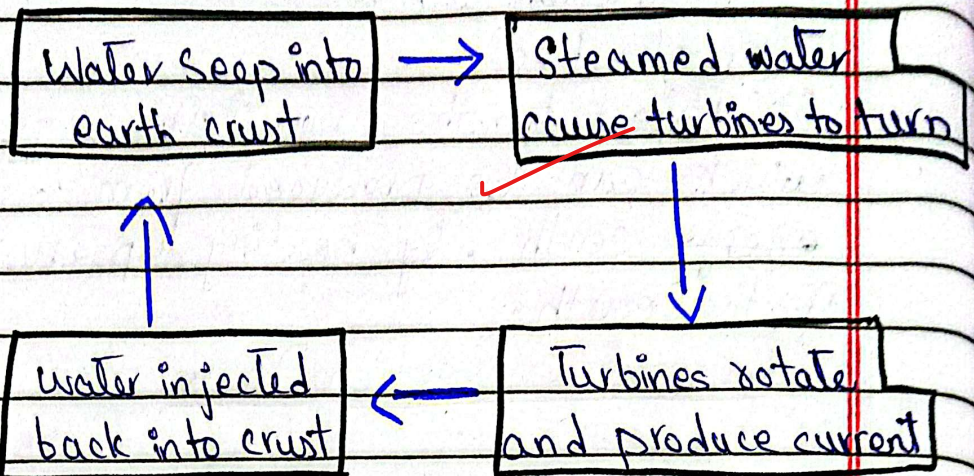 Water seep into
earth crust
Steamed water
cause turbines to turn
Turbines rotate
and produce current
water injected
back into crust